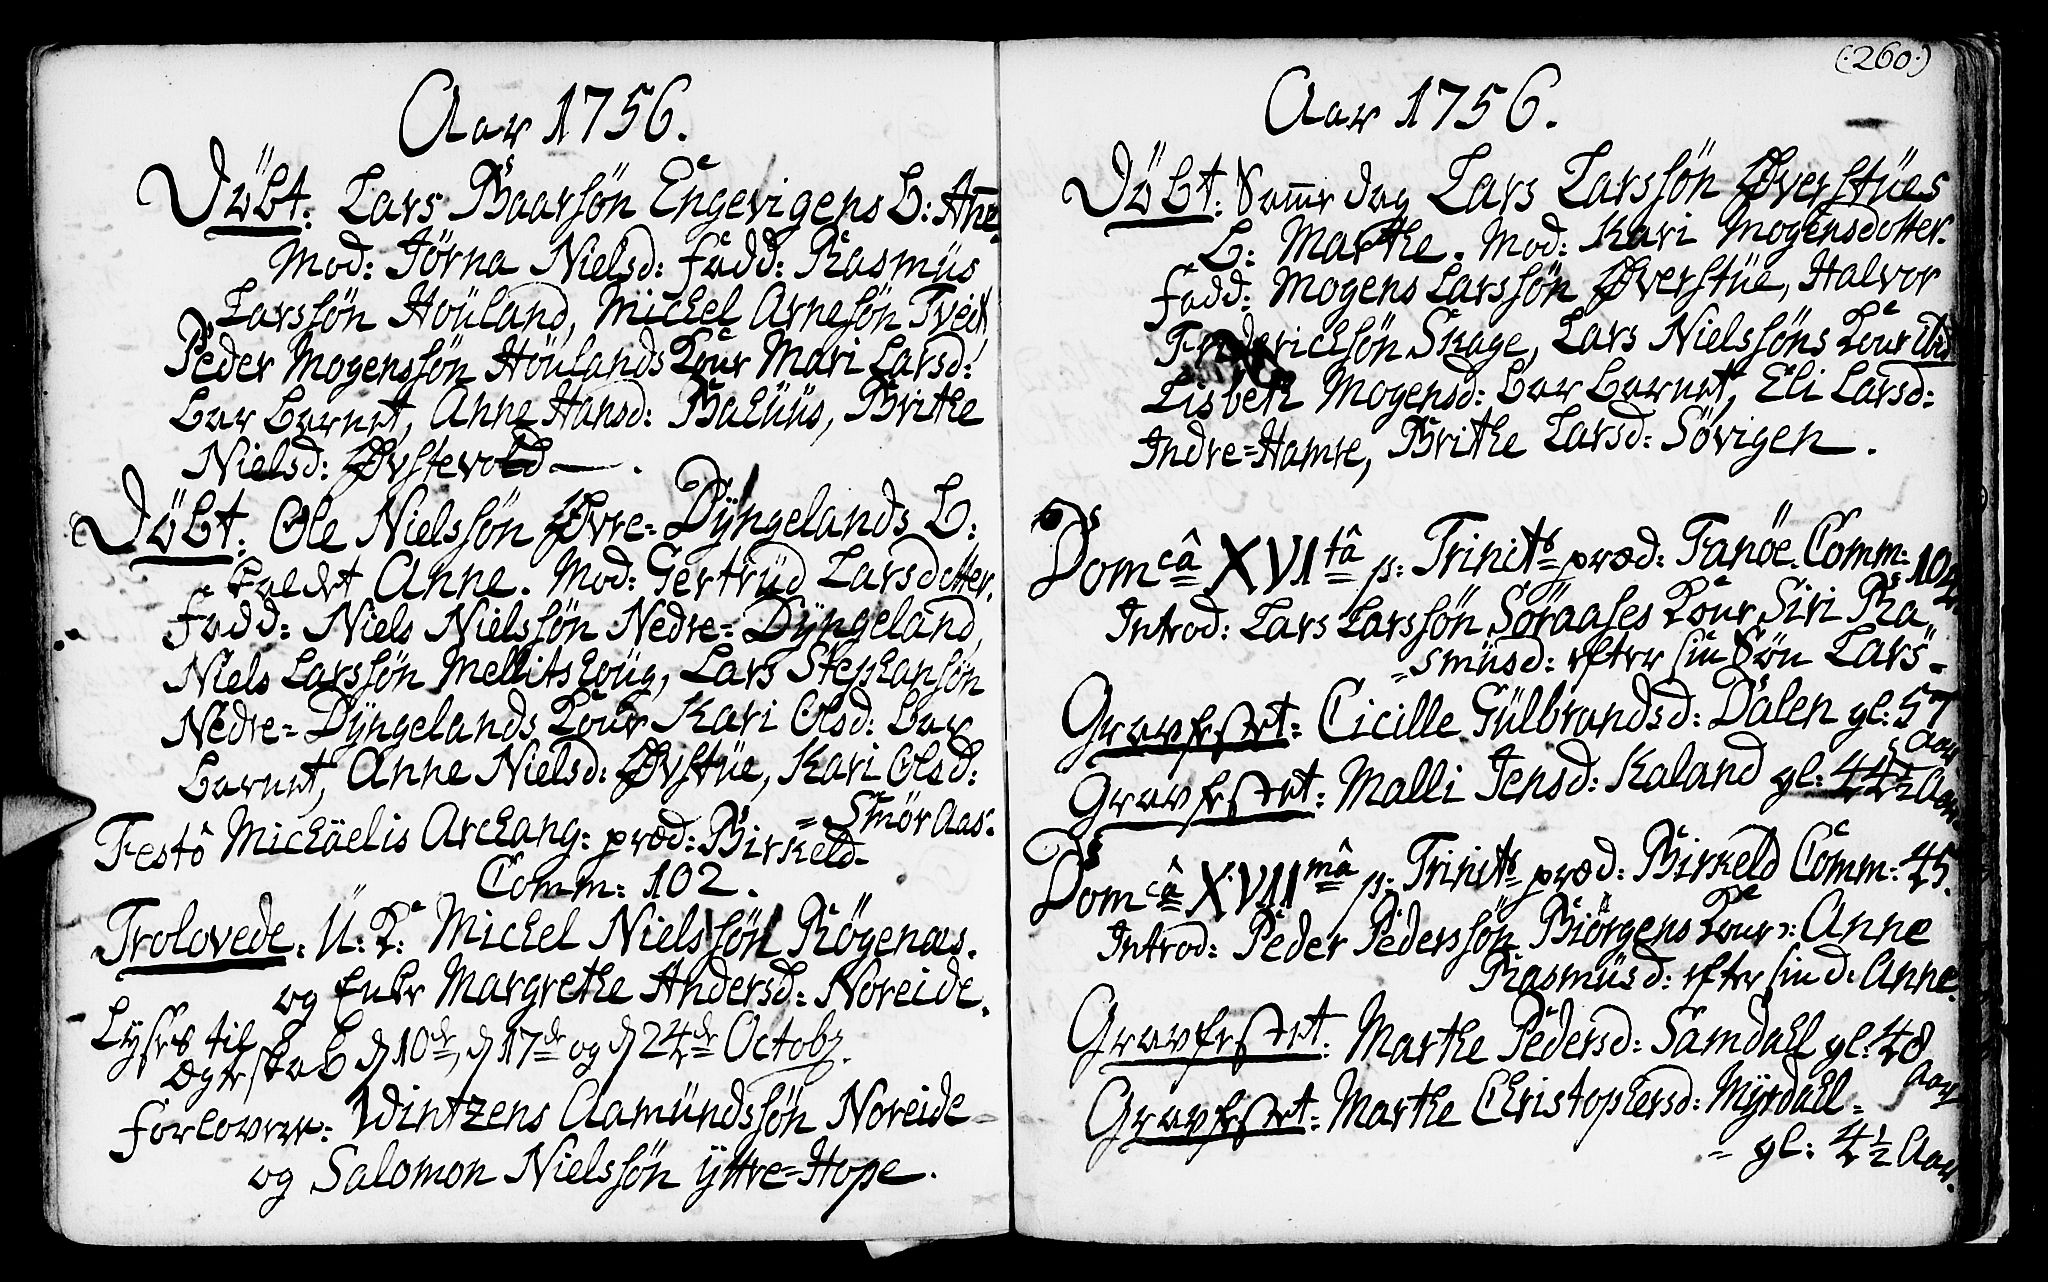 Aar 1756.
Döbt: Lars Baarsön Engevigens b: Ane.
Mod: Jörna Nielsd: Fadd: Rasmüs
Larssön Houland, Michel Arnesön Tveit,
Peder Mogenssön Höulands Kone Mari Larsd:
bar barnet, Anne Hansd: Bahüüs, Brithe
Nielsd: Øvstevold — .
Döbt: Ole Nielssön Øvre=Dÿngelands b:
kaldet Anne. Mod: Gertrüd Larsdotter.
Fadd: Niels Nielssön Nedre=Dÿngeland,
Niels Larssön Mellitshoug, Lars Stephansön
Nedre=Dÿngelands Kone Kari Olsd: bar
barnet, Anne Nielsd: Øvstüe, Kari Olsd:
= SmörAas.
Festô Michäelis Archang: præd: Birkeld
Comm: 102.
Trolovede: U: K: Michel Nielssön Rögenæs.
og Enke Margrethe Andersd: Noreide.
Lyses til
ægteskab d 10de, d 17de og d 24de Octobr.
Forlovere: Wintzens Aamündssön Noreide
og Salomon Nielssön ÿttre=Hope.
(:260:)
Aar 1756.
Döbt: Same dag Lars Larssön Øverstües
b: Marthe. Mod: Kari Mogensdotter.
Fadd: Mogens Larssön Øverstüe, Halvor
Friderichsön Skage, Lars Nielssöns Kone ibid
Lisbeth Mogensd: bar barnet, Eli Larsd:
Indre=Hamre, Brithe Larsd: Sövigen .
Domcâ XVItâ p: Trinits præd: Fanöe. Comm: 104.
Introd: Lars Larssön Söraases Kone Siri Ra
=smüsd: efter sin Sön Lars -
Gravfestet: Cicille Gülbrandsd: Dalen gl: 57
Aar
Gravfestet: Malli Jensd: Kaland gl: 44½ Aar.
Domcâ XVIImâ p: Trinits præd: Birkeld Comm: 45.
Introd: Peder Pederssön Biörgens Kone: Anne
Rasmüsd: efter sin d: Anne.
Gravfestet: Marthe Pedersd: Samdahl gl: 48
Aar
Gravfestet: Marthe Christophersd: Mÿrdahl -
= gl: 4½ Aar.